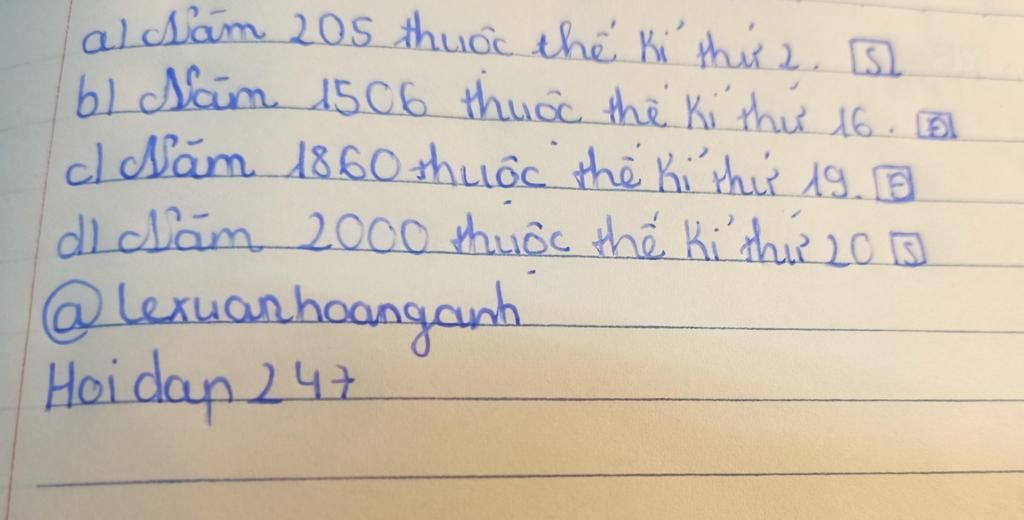 a) Năm 205 thuộc thế kỉ thứ 2. S
b) Năm 1506 thuộc thế kỉ thứ 16. Đ
c) Năm 1860 thuộc thế kỉ thứ 19. Đ
d) Năm 2000 thuộc thế kỉ thứ 20 S
@lexuanhoanganh
Hoidap247